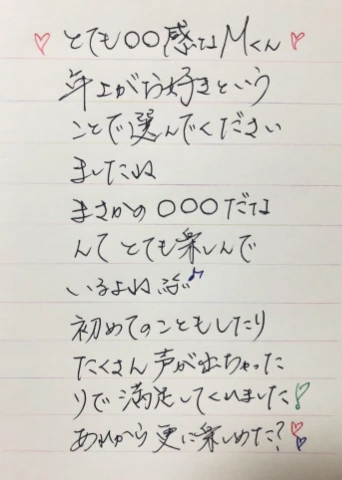 とても○○感なMくん
年上がお好きという
ことで選んでください
ましたね
まさかの○○○だな
んてとても楽しんで
いるよね
初めてのこともしたり
たくさん声が出ちゃった
りで満足してくれました
あれから更に楽しめた?